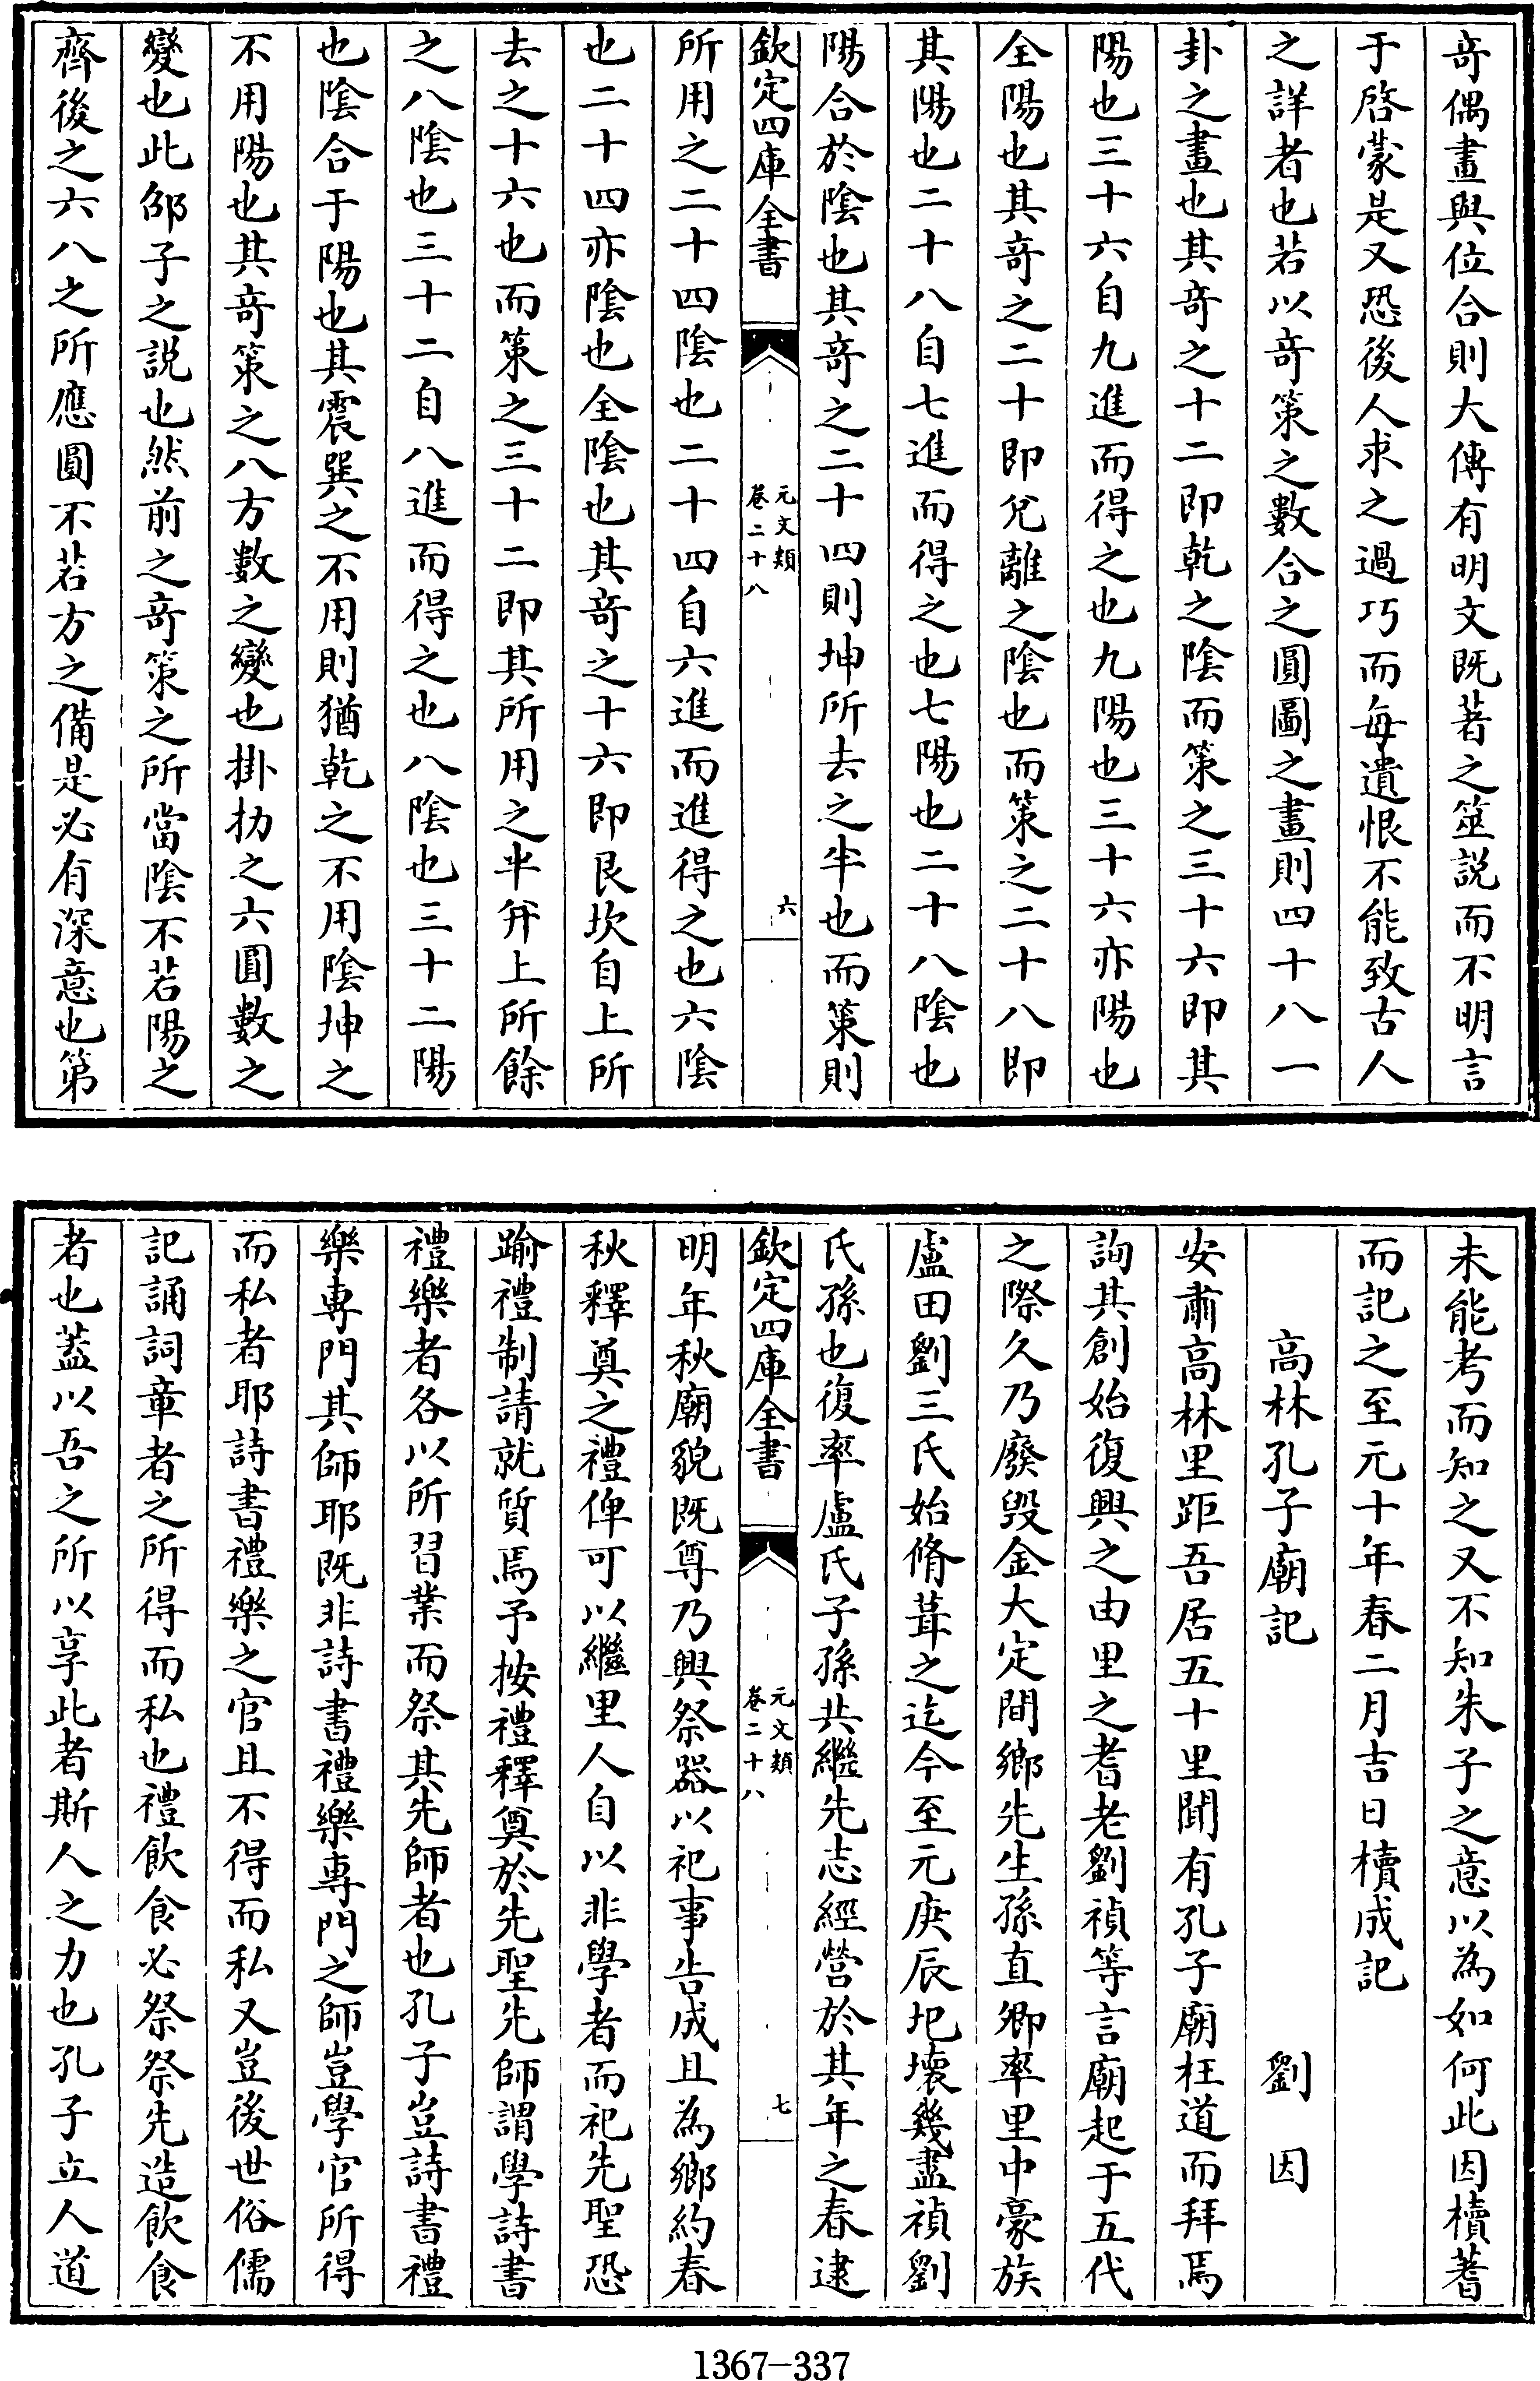 奇偶畫與位合則大傳有明文既著之筮説而不明言
于啓蒙是又恐後人求之過巧而每遺恨不能致古人
之詳者也若以奇策之數合之圓圖之畫則四十八一
卦之畫也其奇之十二即乾之陰而策之三十六即其
陽也三十六自九進而得之也九陽也三十六亦陽也
全陽也其奇之二十即兊離之陰也而策之二十八即
其陽也二十八自七進而得之也七陽也二十八陰也
陽合於陰也其奇之二十四則坤所去之半也而策則
欽定四庫全書
元文類
卷二十八
六
所用之二十四陰也二十四自六進而進得之也六陰
也二十四亦陰也全陰也其奇之十六即艮坎自上所
去之十六也而策之三十二即其所用之半并上所餘
之八陰也三十二自八進而得之也八陰也三十二陽
也陰合于陽也其震巽之不用則猶乾之不用陰坤之
不用陽也其奇策之八方數之變也掛扐之六圓數之
變也此邵子之説也然前之奇策之所當陰不若陽之
齊後之六八之所應圓不若方之備是必有深意也第
未能考而知之又不知朱子之意以為如何此因櫝蓍
而記之至元十年春二月吉日櫝成記
高林孔子廟記 劉因
安肅高林里距吾居五十里聞有孔子廟枉道而拜焉
詢其創始復興之由里之耆老劉禎等言廟起于五代
之際久乃廢毀金大定間鄉先生孫直卿率里中豪族
盧田劉三氏始脩葺之迄今至元庚辰圯壞幾盡禎劉
氏孫也復率盧氏子孫共繼先志經營於其年之春逮
欽定四庫全書
元文類
卷二十八
七
明年秋廟貌既尊乃興祭器以祀事告成且為鄉約春
秋釋奠之禮俾可以繼里人自以非學者而祀先聖恐
踰禮制請就質焉予按禮釋奠於先聖先師謂學詩書
禮樂者各以所習業而祭其先師者也孔子豈詩書禮
樂專門其師耶既非詩書禮樂專門之師豈學官所得
而私者耶詩書禮樂之官且不得而私又豈後世俗儒
記誦詞章者之所得而私也禮飲食必祭祭先造飲食
者也蓋以吾之所以享此者斯人之力也孔子立人道
1367-337